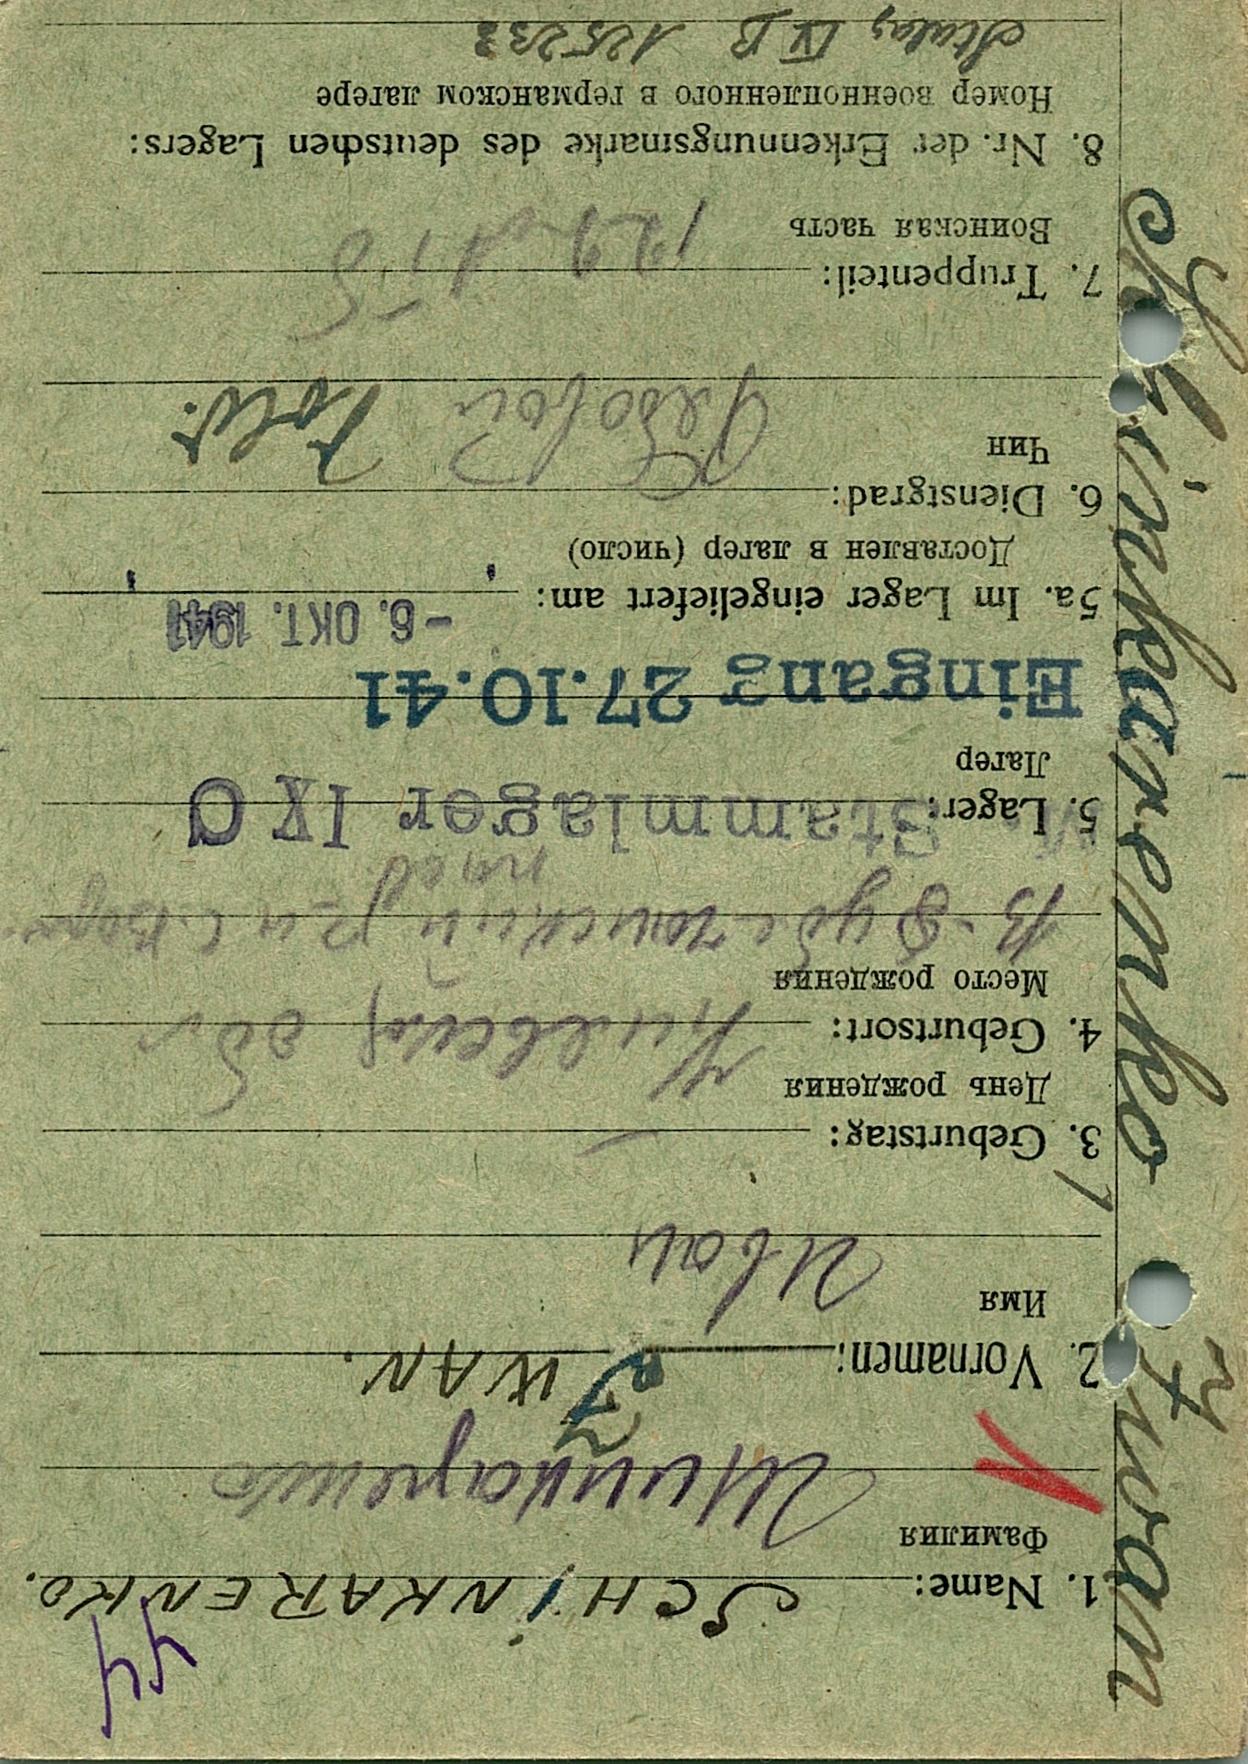 44
1. Name: SCHINKARENKO.
Фамилия
Шинкаренко
2. Vornamen: IWAN.
Имя
Иван
3. Geburtstag:
День рождения
4. Geburtsort: Киевская обл
Место рождения
5. Lager: Stammlager IV
Лагер
Eingang 27.10.41
5a. Im Lager eingeliefert am: -6. OKT. 1941
Доставлен в лагер (число)
6. Dienstgrad:
Чин
Рядовой Sold.
7. Truppenteil:
Воинская часть
8. Nr. der Erkennungsmarke des deutschen Lagers:
Номер военнопленного в германском лагере
Stalag IV B 125233
Schinkarenko Iwan